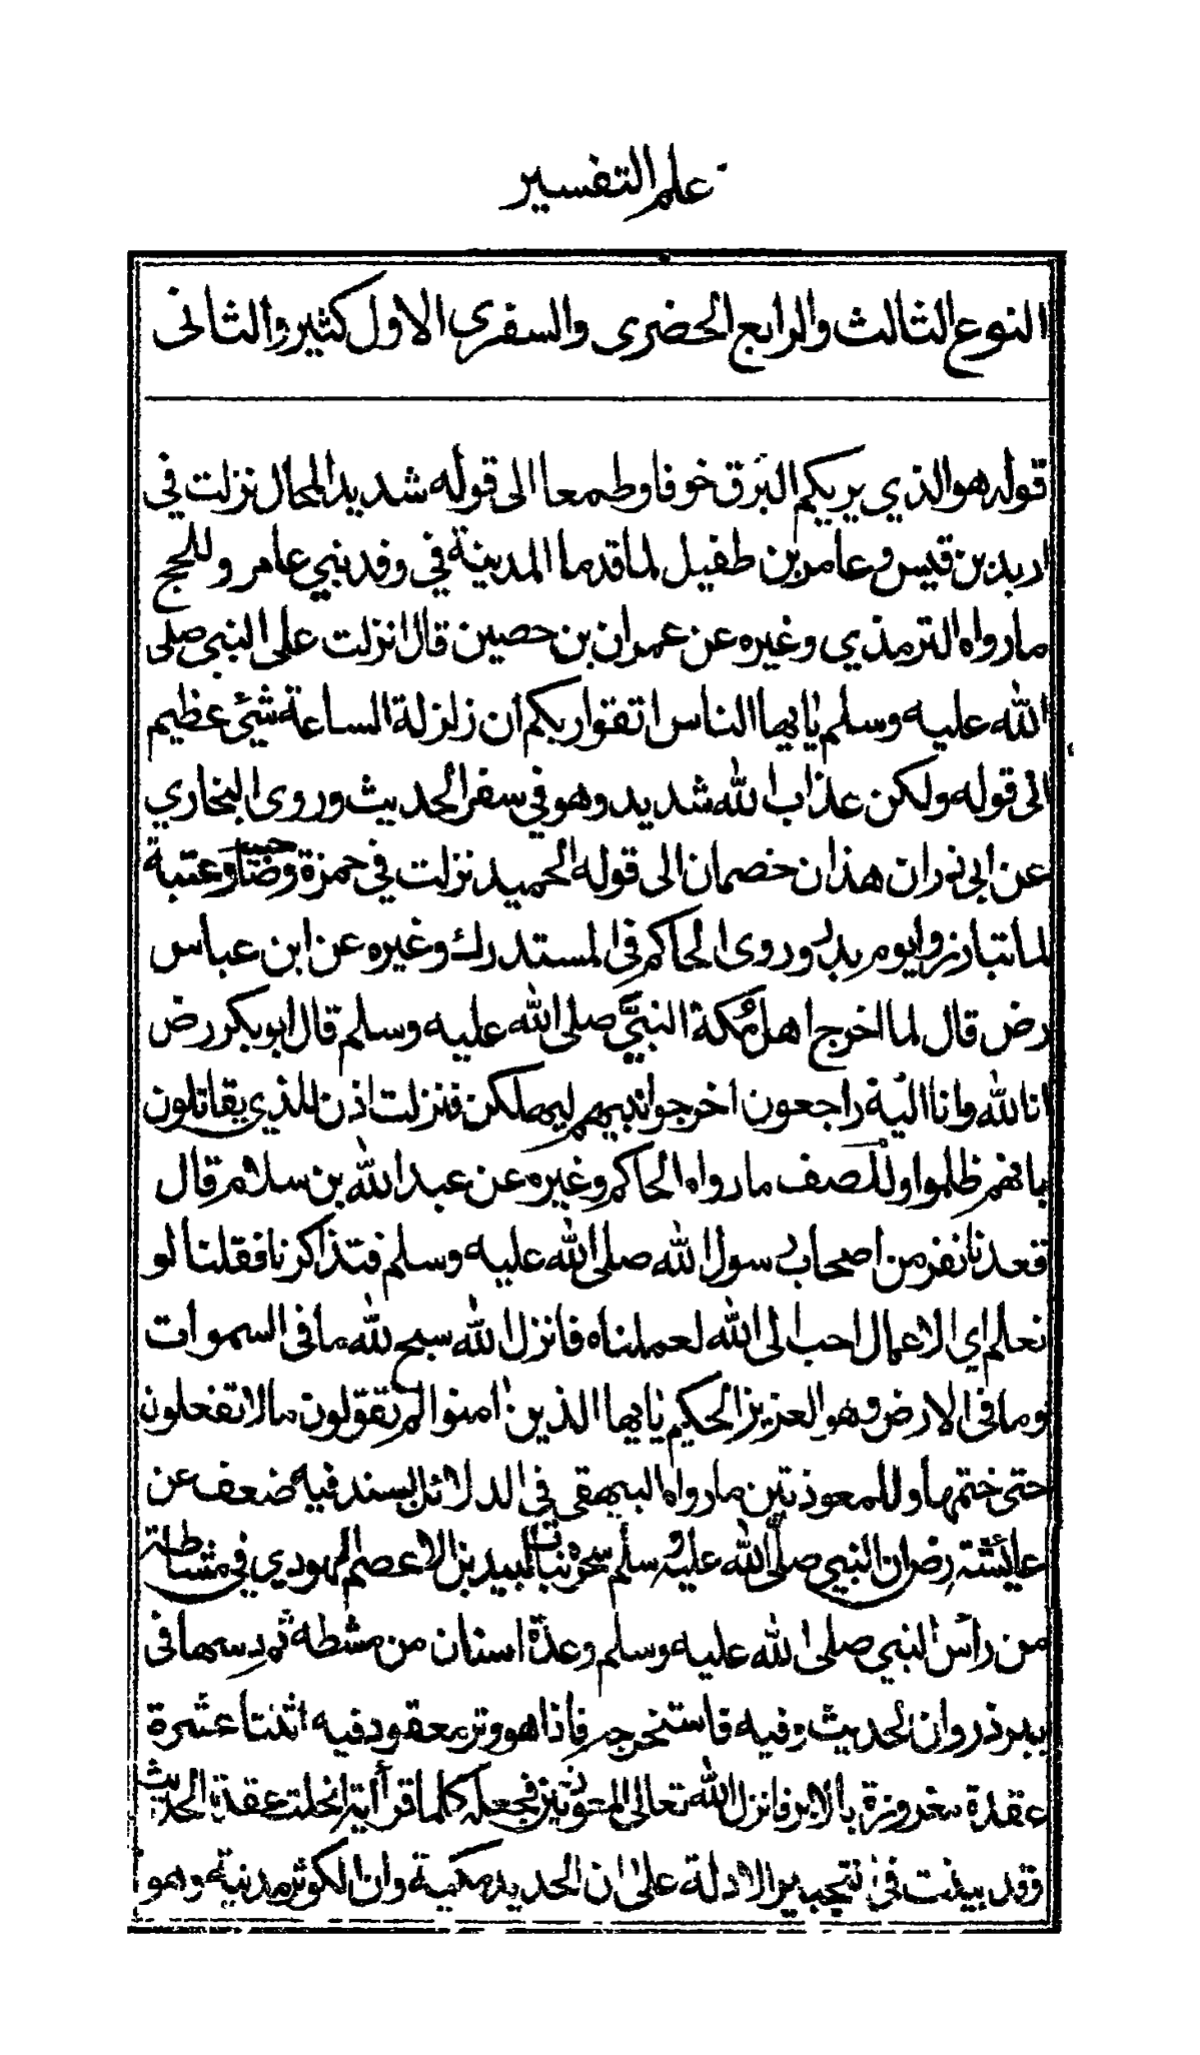 علم التفسير
النوع الثالث والرابع الحضرى والسفرى الاول كثير والثانى
قوله هو الذي يريكم البرق خوفا وطمعا الى قوله شديد المحال نزلت في
اربد بن قيس وعامر بن طفيل لما قدما المدينة في وفد بني عامر وللحج
ما رواه الترمذي وغيره عن عمران بن حصين قال انزلت على النبي صلى
الله عليه وسلم يايها الناس اتقوا ربكم ان زلزلة الساعة شئ عظيم
الى قوله ولكن عذاب الله شديد وهو في سفر الحديث وروى البخاري
عن ابى ذر ان هذان خصمان الى قوله الحميد نزلت في حمزة وعتبة
لما تبارزوا يوم بدر وروى الحاكم في المستدرك وغيره عن ابن عباس
رض قال لما اخرج اهل مكة النبي صلى الله عليه وسلم قال ابو بكر رض
انا لله وانا اليه راجعون اخرجوا نبيهم ليهلكن فنزلت اذن للذي يقاتلون
بانهم ظلموا وللصف ما رواه الحاكم وغيره عن عبد الله بن سلام قال
قعدنا نفر من اصحاب رسول الله صلى الله عليه وسلم فتذاكرنا فقلنا لو
نعلم اي الاعمال احب الى الله لعملناه فانزل الله سبح لله ما فى السموات
وما فى الارض وهو العزيز الحكيم يايها الذين امنوا لم تقولون ما لا تفعلون
حتى ختمها وللمعوذتين ما رواه البيهقى فى الدلائل بسند فيه ضعف عن
عايشة رض ان النبي صلى الله عليه وسلم سحره لبيد بن الاعصم اليهودي في مشاطة
من رأس النبي صلى الله عليه وسلم وعدة اسنان من مشطه ثم دسها فى
بير ذروان الحديث وفيه فاستخرجه فاذا هو وتر معقود فيه اثنتا عشرة
عقدة مغروزة بالابر فانزل الله تعالى المعوذتين فجعل كلما قرأ آية انحلت عقدة الحديث
وقد بينت فى التحبير الادلة على ان الحديد مكية وان الكوثر مدنية وهو